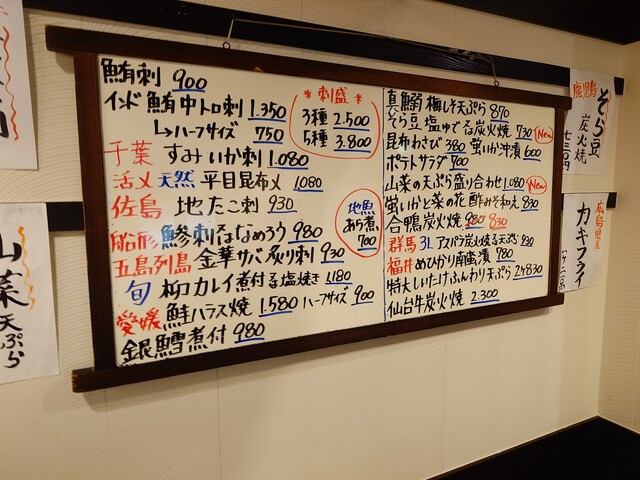 鮪刺 900
インド 鮪中トロ刺 1.350
↳ハーフサイズ 750
千葉 すみいか刺 1.080
活〆 天然 平目昆布〆 1.080
佐島 地たこ刺 930
船形 鯵刺 なめろう 980
五島列島 金華サバ炙り刺 930
旬 柳カレイ煮付 塩焼き 1.180
愛媛 鮭ハラス焼 1.580 ハーフサイズ 900
銀鱈煮付 980
* 刺盛 *
3種 2.500
5種 3.800
地魚
あら煮
700
真鰯 梅しそ天ぷら 870
そら豆 塩ゆで 炭火焼 730 New
昆布わさび 380 蛍いか沖漬 600
ポテトサラダ 700
山菜の天ぷら盛り合わせ 1.080 New
蛍いかと菜の花 酢みそ和え 830
合鴨炭火焼 980 830
群馬 3L アスパラ 炭火焼 天ぷら 930
福井 めひかり南蛮漬 780
特大しいたけふんわり天ぷら 2ケ830
仙台牛炭火焼 2.300
鹿児島
そら豆
炭火焼
七三〇円
広島県産
カキフライ
山菜
天ぷら